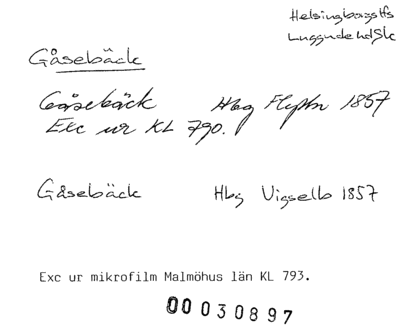 Helsingborgs lfs
Luggude hd Sk
Gåsebäck
Gåsebäck Hbg Flyttn 1857
Exc ur KL 790.
Gåsebäck Hbg Vigsellb 1857
Exc ur mikrofilm Malmöhus län KL 793.
00030897